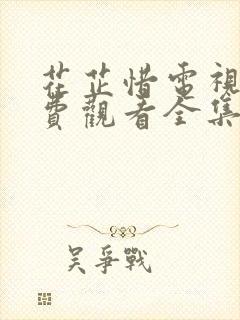 花芷惜電視
費觀看全集
吴爭戰